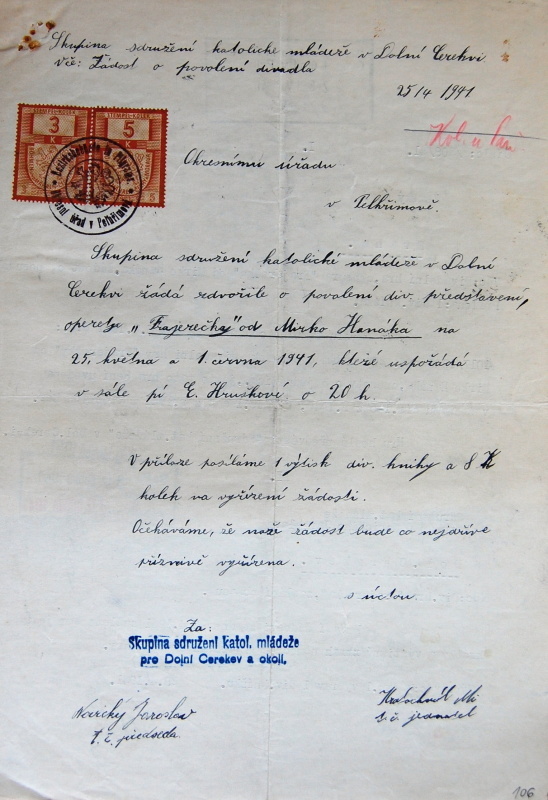 Skupina sdružení katolické mládeže v Dolní Cerekvi
Věc: Žádost o povolení divadla
25/4 1941
STEMPELMARKE KOLEK
3
K
5
K
Okresní úřad v Pelhřimově
Okresnímu úřadu
v Pelhřimově.
Skupina sdružení katolické mládeže v Dolní
Cerekvi žádá zdvořile o povolení div. představení,
operety "Frajerečka" od Mirko Hanáka na
25. května a 1. června 1941, které uspořádá
v sále pí E. Hruškové o 20 h.
V příloze posíláme 1 výtisk div. knihy a 8 K
kolek na vyřízení žádosti.
Očekáváme, že naše žádost bude co nejdříve
příznivě vyřízena.
s úctou
Za:
Skupina sdružení katol. mládeže
pro Dolní Cerekev a okolí,
Jaroslav
t. č. předseda.
Kratochvíl
t. č. jednatel
106